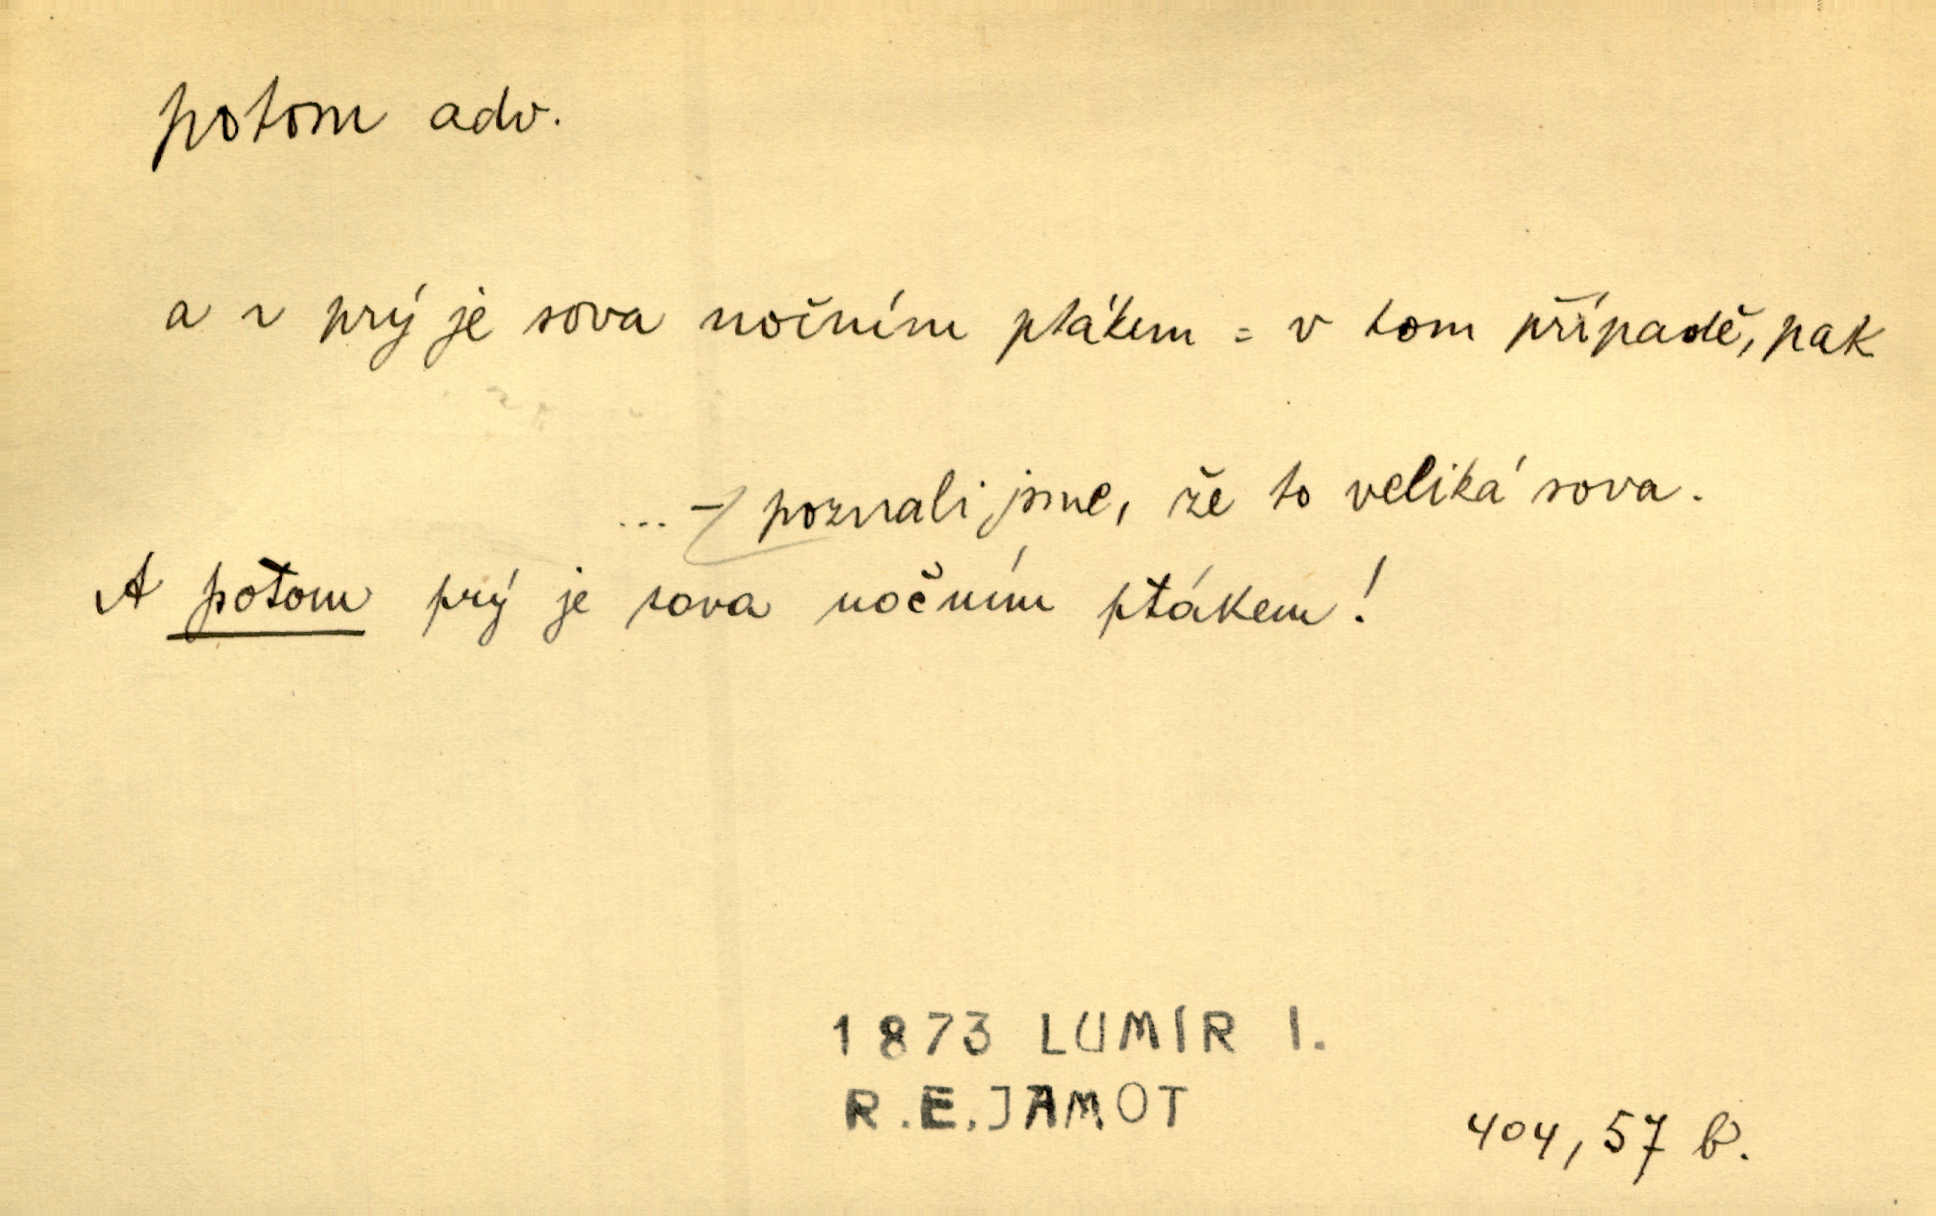 potom adv.
a ~ prý je sova nočním ptákem = v tom případě, pak
... – poznali jsme, že to veliká sova.
A potom prý je sova nočním ptákem!
1873 LUMÍR I.
R.E.JAMOT
404, 57 b.